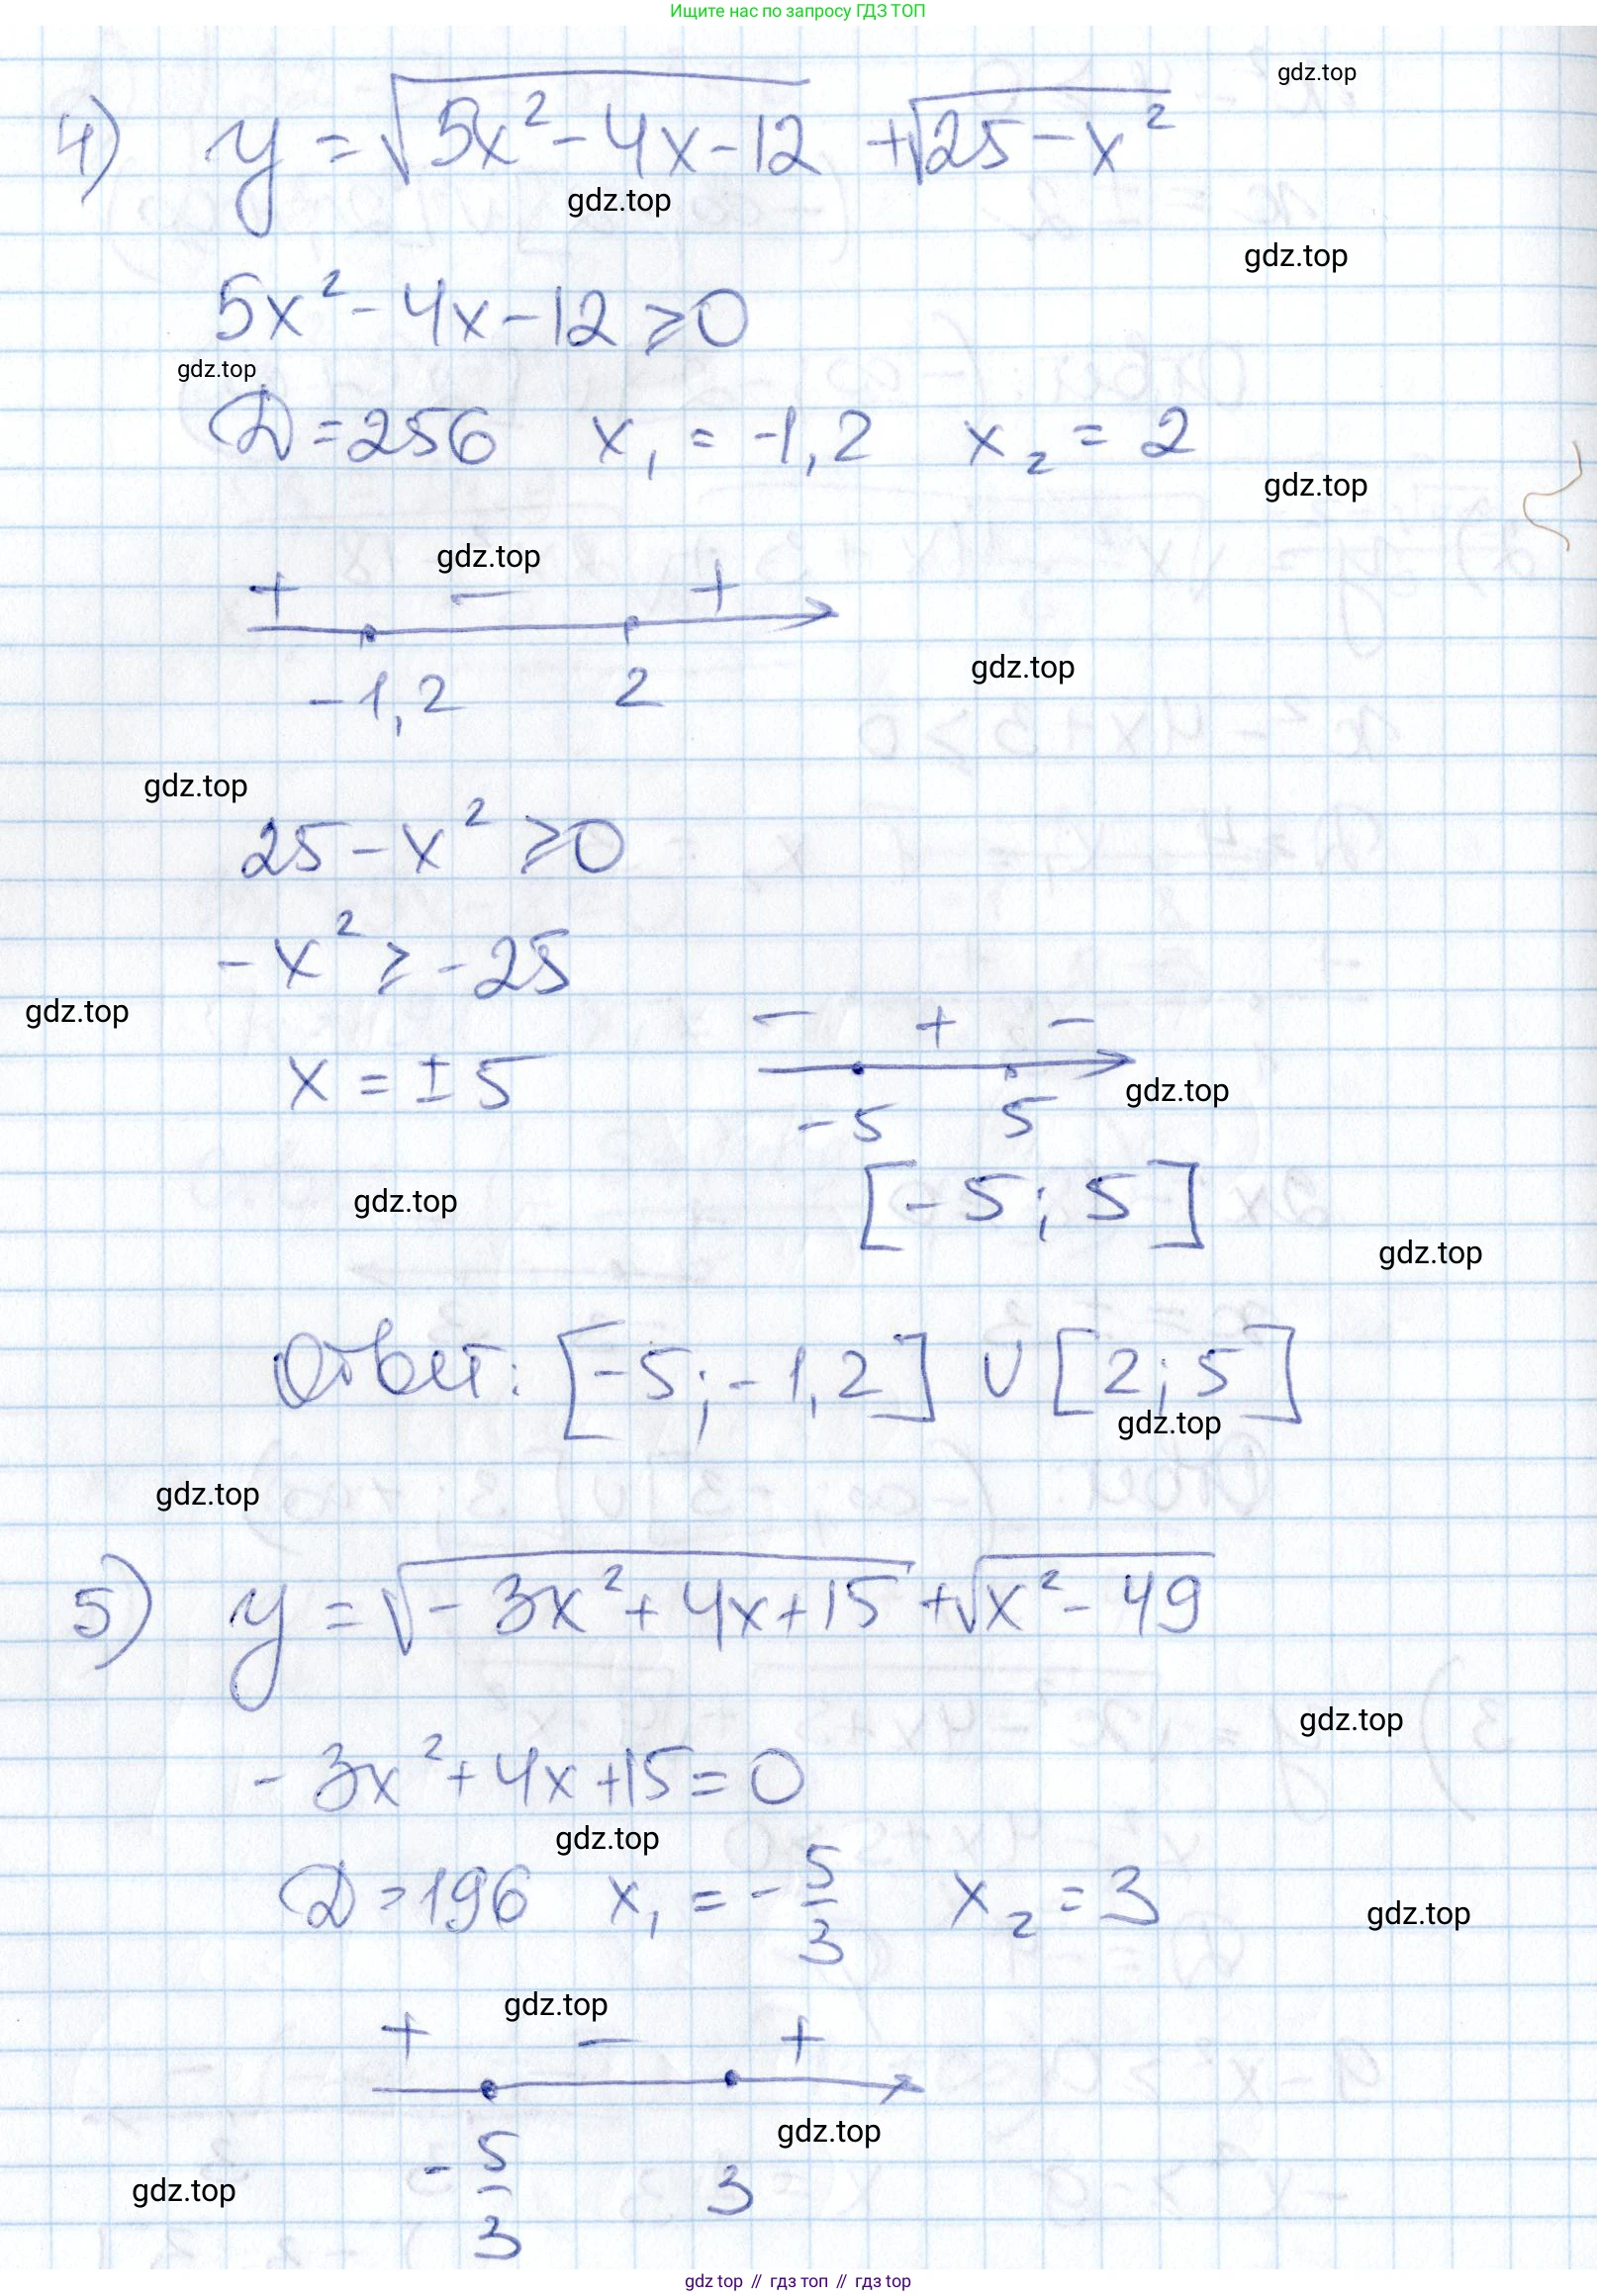 Ищите нас по запросу ГДЗ ТОП
gdz.top
4) y = √(5x² - 4x - 12) + √(25 - x²)
gdz.top
gdz.top
5x² - 4x - 12 ≥ 0
gdz.top
D = 256 x₁ = -1,2 x₂ = 2
gdz.top
gdz.top
+ - +
-1,2 2
gdz.top
gdz.top
25 - x² ≥ 0
-x² ≥ -25
gdz.top
- + -
x = ±5
gdz.top
-5 5
[-5; 5]
gdz.top
gdz.top
Ответ: [-5; -1,2] ∪ [2; 5]
gdz.top
gdz.top
5) y = √(-3x² + 4x + 15) + √(x² - 49)
gdz.top
-3x² + 4x + 15 = 0
gdz.top
D = 196 x₁ = -5/3 x₂ = 3
gdz.top
gdz.top
+ - +
gdz.top
-5/3 3
gdz.top
gdz top // гдз топ // гдз top